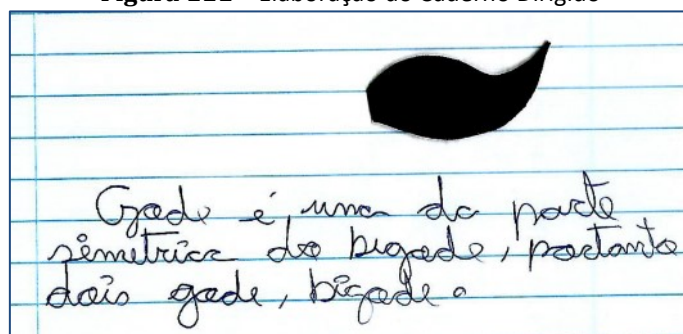 Elaboração do Caderno Dirigido
Gode é uma da parte
simetrica do bigode, portanto
dois gode, bigode.